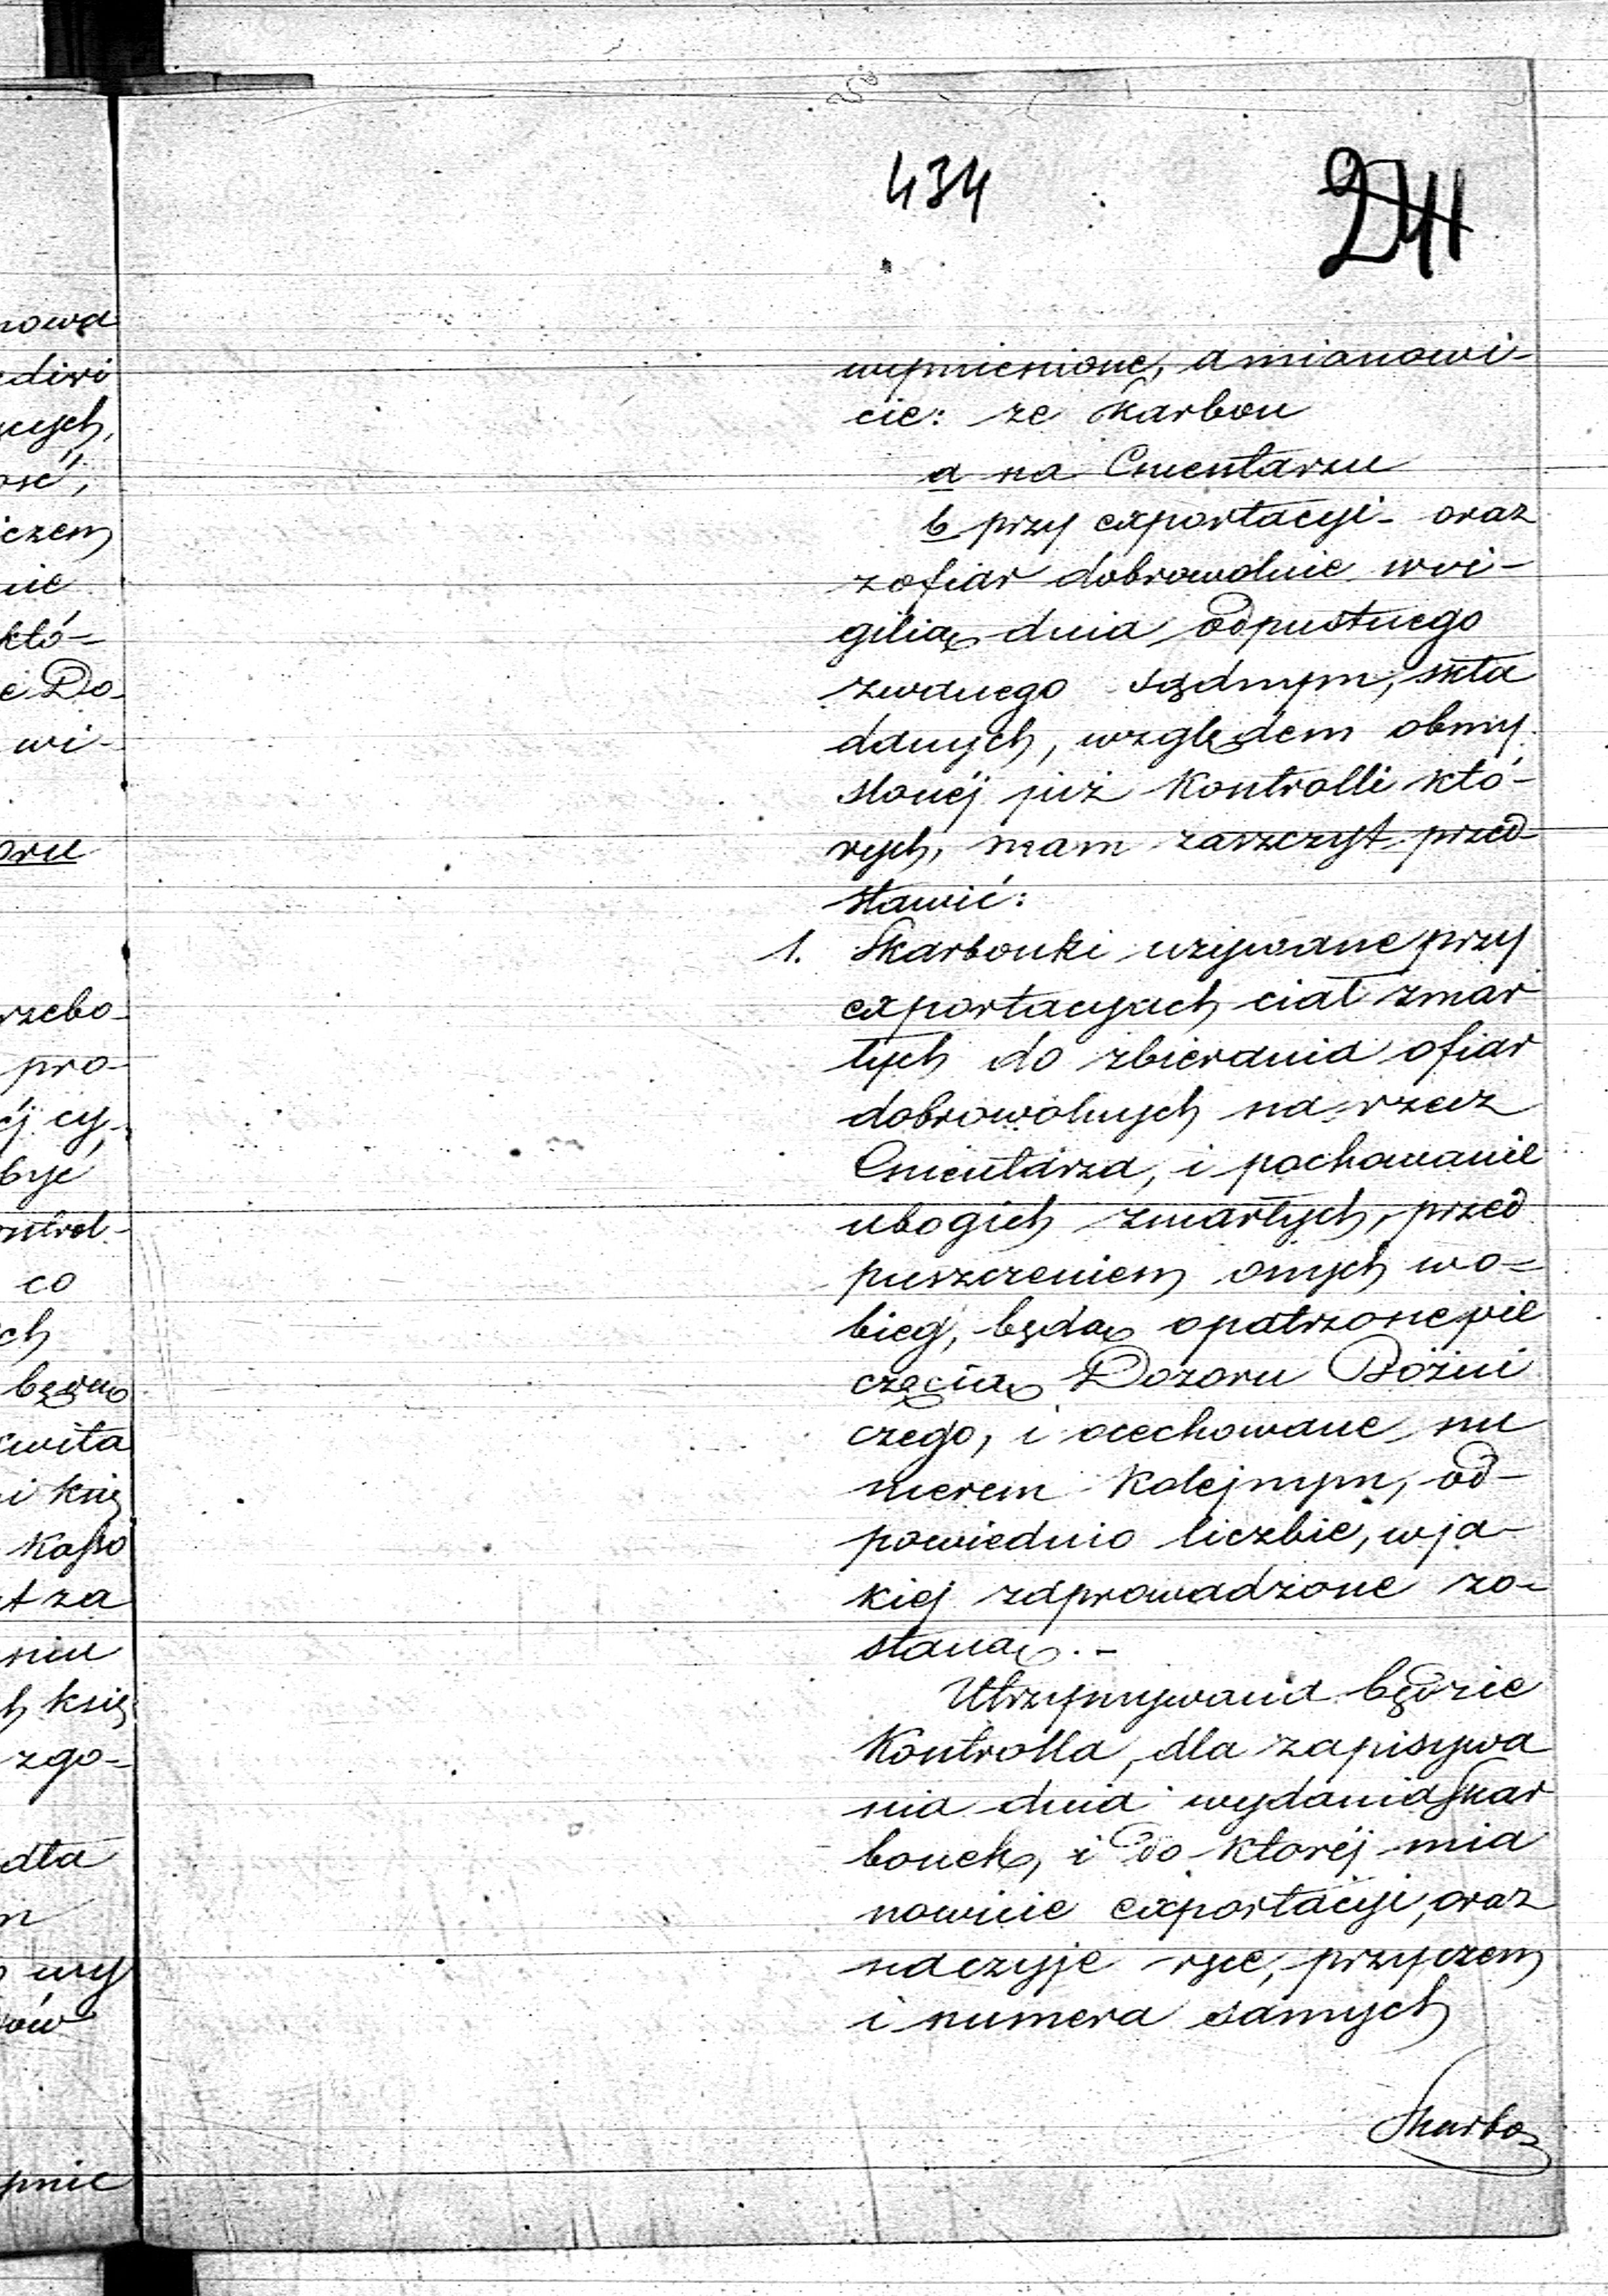 434
241
wymienione, a mianowi-
cie: ze skarbon
a na Cmentarzu
b przy exportacyi - oraz
z ofiar dobrowolnie w wi-
gilią dnia odpustnego
zwanego sądnym, skła
danych, względem obmy
slonéj już Kontrolli któ-
rych, mam zaszczyt przed
stawić:
1. Skarbonki uzywane przy
exportacyach ciał zmar
łych do zbierania ofiar
dobrowolnych na rzecz
Cmentarza, i pochowanie
ubogich zmarłych, przed
puszczeniem onych w o-
bieg, będą opatrzone pie
częcią Dozoru Bożni
czego, i ocechowane nu
merem Kolejnym, od-
powiednio liczbie, w ja-
kiej zaprowadzone zo-
staną. -
Utrzymywana będzie
Kontrolla, dla zapisywa
nia dnia wydania Skar
bonek, i do ktoréj mia
nowicie exportacyi, oraz
na czyje ręce, przyczem
i numera samych
Skarbo
nowa
ących,
ość,
iczem
nie
któ-
e Do-
wi-
oru
rzebo-
pro-
éj cy-
być
ontrol-
co
ch
kwita
i księ
kasso
t za
niu
h księ
zgo-
dla
wy
ów
pnie